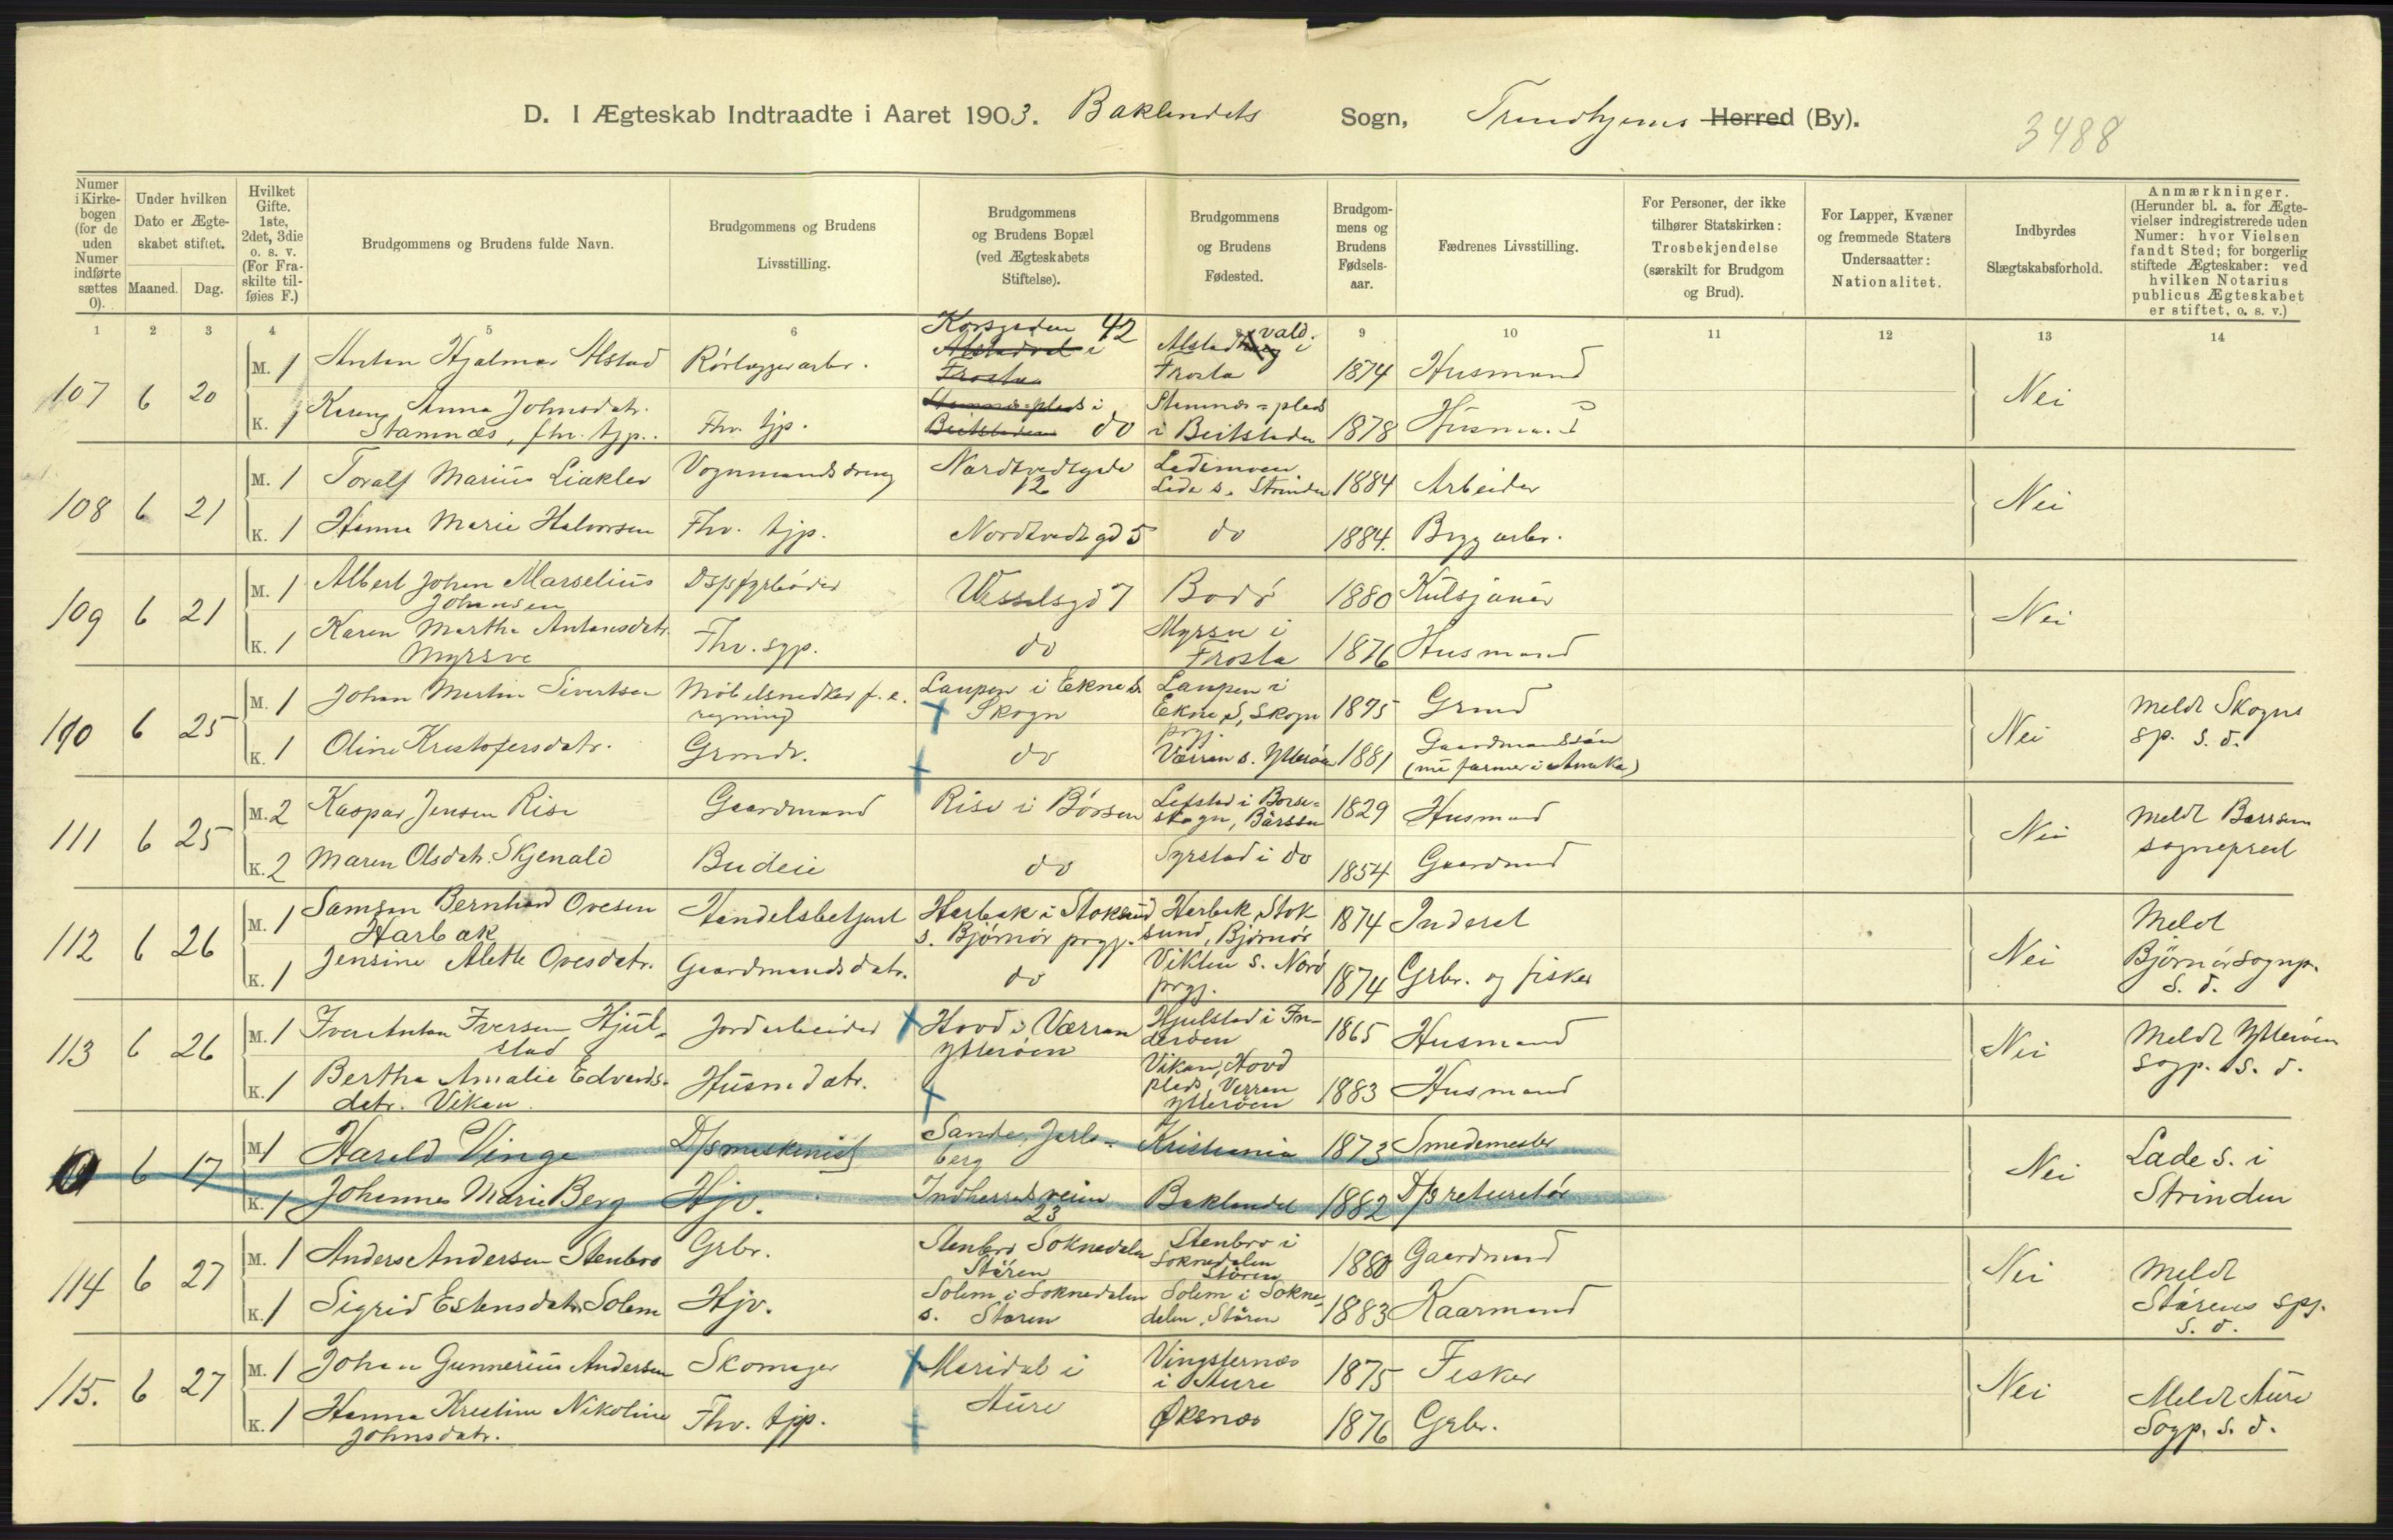 D. I Ægteskab Indtraadte i Aaret 1903. Baklandets Sogn, Trondhjems Herred (By).
3488
Numer i Kirkebogen (for de uden Numer indførte sættes 0).
Under hvilken Dato er Ægteskabet stiftet.
Maaned. Dag.
Hvilket Gifte. 1ste, 2det, 3die o. s. v. (For Fraskilte tilføies F.)
Brudgommens og Brudens fulde Navn.
Brudgommens og Brudens Livsstilling.
Brudgommens og Brudens Bopæl (ved Ægteskabets Stiftelse).
Brudgommens og Brudens Fødested.
Brudgommens og Brudens Fødselsaar.
Fædrenes Livsstilling.
For Personer, der ikke tilhører Statskirken: Trosbekjendelse (særskilt for Brudgom og Brud).
For Lapper, Kvæner og fremmede Staters Undersaatter: Nationalitet.
Indbyrdes Slægtskabsforhold.
Anmærkninger. (Herunder bl. a. for Ægtevielser indregistrerede uden Numer: hvor Vielsen fandt Sted; for borgerlig stiftede Ægteskaber: ved hvilken Notarius publicus Ægteskabet er stiftet, o. s. v.)
1 2 3 4 5 6 9 10 11 12 13 14
107 6 20 M. 1 Anton Hjalmar Alstad Rörlæggerarbr. Korsgaden 42 Alstadvald i Frosta 1874 Husmand Nei
K. 1 Karen Anna Johnsdatr. Stamnæs, fhv. tjp. Fhv. tjp. do Stamnæs=plads i Beitstaden 1878 Husmand
108 6 21 M. 1 Toralf Marius Liaklev Vognmandsdreng Nordtvedtgade 12 Ladeimoen Lade s. Strinden 1884 Arbeider Nei
K. 1 Hanna Marie Halvorsen Fhv. tjp. Nordtvedtgd 5 do 1884. Bryggarbr.
109 6 21 M. 1 Albert Johan Marselius Johansen Dspfyrböder Wesselsgd 7 Bodö 1880 Kulsjouer Nei
K. 1 Karen Martha Antonsdatr. Myrsve Fhv. syp. do Myrsve i Frosta 1876 Husmand
110 6 25 M. 1 Johan Martin Sivertsen Möbelsnedker f. e. regning Laupen i Ekne s. Skogn Laupen i Ekne S, Skogn prgj. 1875 Grmd Nei Meldt Skogns sp. s. d.
K. 1 Oline Kristofersdatr. Grmdr. do Værran s. Ytteröen 1881 Gaardmandssön (nu farmer i Amerka)
111 6 25 M. 2 Kaspar Jensen Rise Gaardmand Rise i Börsen Lefstad i Börseskogn, Børssen 1829 Husmand Nei Meldt Børssen sogneprest
K. 2 Maren Olsdatr. Skjenald Budeie do Syrstad i do 1854 Gaardmd
112 6 26 M. 1 Samson Bernhard Ovesen Harbak Handelsbetjent Harbak i Stoksund s. Bjørnör prgj. Harbak, Stoksund, Bjørnör 1874 Inderst Nei Meldt Björnör sognp. s. d.
K. 1 Jensine Alette Ovesdatr. Gaardmandsdatr. do Vikten s. Närö prgj. 1874 Grbr. og fisker
113 6 26 M. 1 Iver Anton Iversen Hjulstad Jordarbeider Hovd i Værran Ytteröen Hjulstad i Inderöen 1865 Husmand Nei Meldt Ytteröen sogp. s. d.
K. 1 Bertha Amalie Edvardsdatr. Vikan. Husmdatr. Vikan, Hovd plads, Verran Ytteröen 1883 Husmand
0 6 17 M. 1 Harald Vinge D/smaskinist Sande, Jarlsberg Kristiania 1873 Smedemester Nei Lade s. i Strinden
K. 1 Johanne Marie Berg Hjv. Indherredsveien 23 Baklandet 1882
114 6 27 M. 1 Anders Andersen Stenbro Grbr. Stenbro Soknedalen Stören Stenbro i Soknedalen Stören 1880 Gaardmand Nei Meldt Störens spj. s. d.
K. 1 Sigrid Estensdatr. Solem Hjv. Solem i Soknedalen s. Stören Solem i Soknedalen, Stören 1883 Kaarmand
115. 6 27 M. 1 Johan Gunnerius Andersen Skomager Maridal i Aure Vingsternæs i Aure 1875 Fisker Nei Meldt Aure Sogp. s. d.
K. 1 Hanna Kristine Nikoline Johnsdatr. Fhv. tjp. Øksnæs 1876 Grbr.